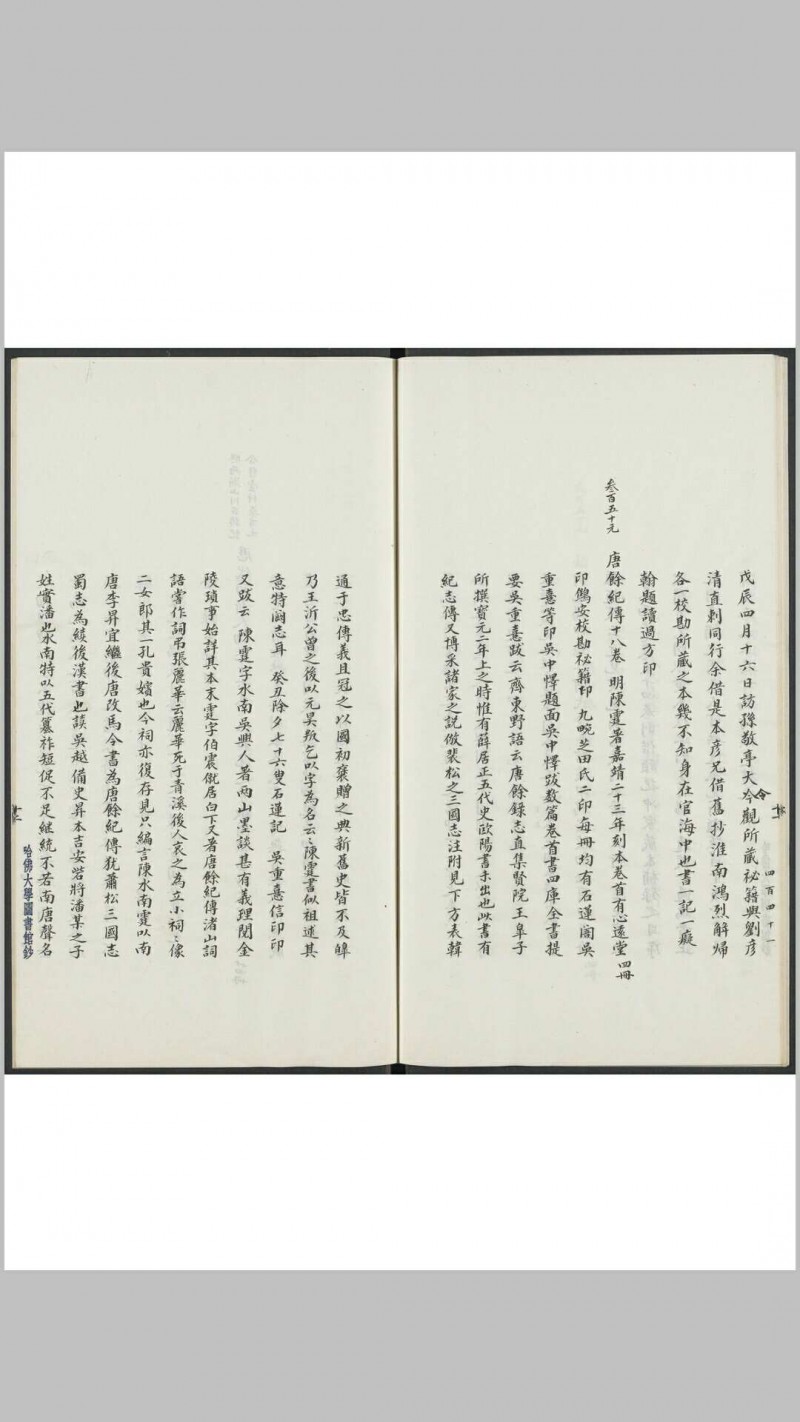 戊辰四月十六日訪孫敬亭大令觀所藏秘籍與劉彥
清直刺同行余借是本彥兄借舊抄淮南鴻烈解歸
各一校勘所藏之本幾不知身在官海中也書一記一癡
翰題讀過方印
叁百五十元
唐餘紀傳十八卷 明陳霆著嘉靖二十三年刻本卷首有心遠堂 四冊
印鷦安校勘秘籍印 九畹芝田氏二印每冊均有石蓮闇吳
重憙等印吳中懌題面吳中懌跋数篇卷首書四庫全書提
要吳重憙跋云齊東野語云唐餘錄志直集賢院王皐子
所撰寶元二年上之時惟有薛居正五代史歐陽書未出也此書有
紀志傳又博采諸家之説倣裴松之三國志注附見下方表韓
通于忠傳義且冠之以國初褒贈之典新舊史皆不及皡
乃王沂公曾之後以元昊叛乞以字為名云〻陳霆書似祖述其
意特闕志耳 癸丑除夕七十六叟石蓮記 吳重憙信印印
又跋云 陳霆字水南吳興人著兩山墨談甚有義理閱金
陵瑣事始詳其本末霆字伯震僦居白下又著唐餘紀傳渚山詞
語嘗作詞弔張麗華云麗華死于青溪後人哀之為立小祠〻像
二女郎其一孔貴嬪也今祠亦復存見只編言陳水南霆以南
唐李昇宜繼後唐改馬令書為唐餘紀傳犹蕭松三國志
蜀志為續後漢書也談吳越備史昇本吉安砦將潘某之子
姓實潘也水南特以五代纂祚短促不足継統不若南唐聲名
哈佛大學圖書館鈔
四百四十一